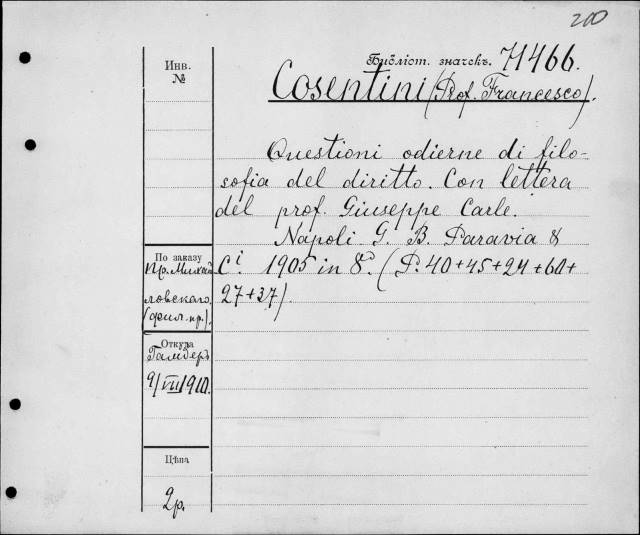 200
Инв.
№
Библіот. значекъ. 71466.
Cosentini (Prof. Francesco).
Questioni odierne di filo-
sofia del diritto. Con lettera
del prof. Giuseppe Carle.
Napoli G. B. Paravia &
Cⁱ. 1905 in 8º. (P. 40+45+24+60+
27+37).
По заказу
Пр. Михай
ловскаго.
(фил. пр.).
Откуда
Гамберъ
9/VII 1910.
Цѣна
2р.